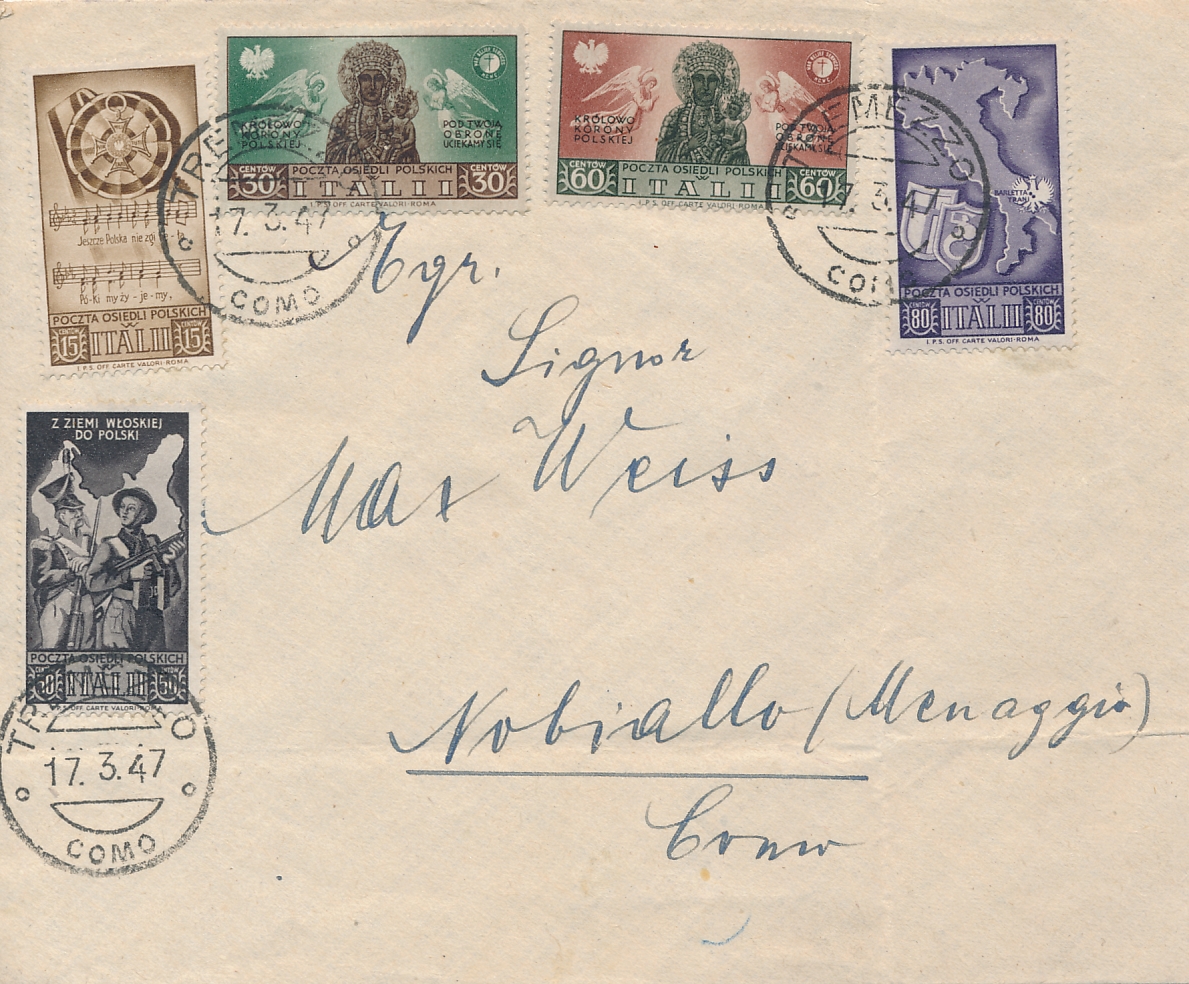 Jeszcze Polska nie zgi - nę -
Pó-ki my ży - je - my,
POCZTA OSIEDLI POLSKICH
W
CENTÓW 15 ITALII CENTÓW 15
I.P.S. OFF. CARTE VALORI-ROMA
KRÓLOWO
KORONY
POLSKIEJ
WAR RELIEF SERVICES
N.C.W.C.
POD TWOJĄ
OBRONĘ
UCIEKAMY SIĘ
POCZTA OSIEDLI POLSKICH
W
CENTÓW 30 ITALII CENTÓW 30
I.P.S. OFF. CARTE VALORI-ROMA
KRÓLOWO
KORONY
POLSKIEJ
WAR RELIEF SERVICES
N.C.W.C.
POD TWOJĄ
OBRONĘ
UCIEKAMY SIĘ
POCZTA OSIEDLI POLSKICH
W
CENTÓW 60 ITALII CENTÓW 60
I.P.S. OFF. CARTE VALORI-ROMA
BARLETTA
TRANI
POCZTA OSIEDLI POLSKICH
W
CENTÓW 80 ITALII CENTÓW 80
I.P.S. OFF. CARTE VALORI-ROMA
TREMEZZO
17.3.47
COMO
TREMEZZO
17.3.47
COMO
Egr.
Signor
Max Weiss
Z ZIEMI WŁOSKIEJ
DO POLSKI
POCZTA OSIEDLI POLSKICH
W
CENTÓW 50 ITALII CENTÓW 50
I.P.S. OFF. CARTE VALORI-ROMA
TREMEZZO
17.3.47
COMO
Nobiallo (Menaggio)
Como